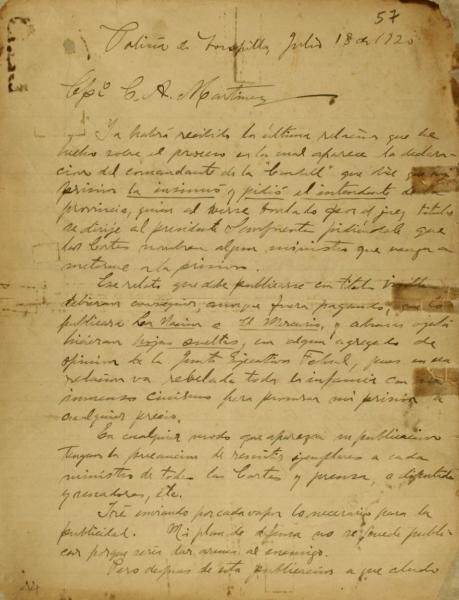 57
Policía de Tocopilla, Julio 18 de 1920
C. A. Martinez
Ya habrá recibido la última relación que he
hecho sobre el proceso en la cual aparece la declara-
cion del comandante de la que dice que mi
prision la insinuó y pidió el intendente de
provincia, quien al verse por el juez titular
se dirije al presidente pidiendole que
las Cortes nombren algun ministro que venga a
meterme a la prision.
Ese relato que debe publicarse con titulo
debieran conseguir, aunque fuera pagando, que lo
publicara La Nacion o El Mercurio, y ademas ojalá
hicieran hojas sueltas, con algun agregado de
opinion de la Junta Ejecutiva Federal, pues en esa
relacion va rebelada toda la infamia con
inmenso cinismo para procurar mi prision a
cualquier precio.
En cualquier modo que aparezca su publicacion
tengan la precaucion de remitir ejemplares a cada
ministro de todas las Cortes y prensa, a diputados
y senadores, etc.
Iré enviando por cada vapor lo necesario para la
publicidad. Mi plan de defensa no se puede publi-
car porque sería dar armas al enemigo.
Pero despues de esta publicacion a que aludo